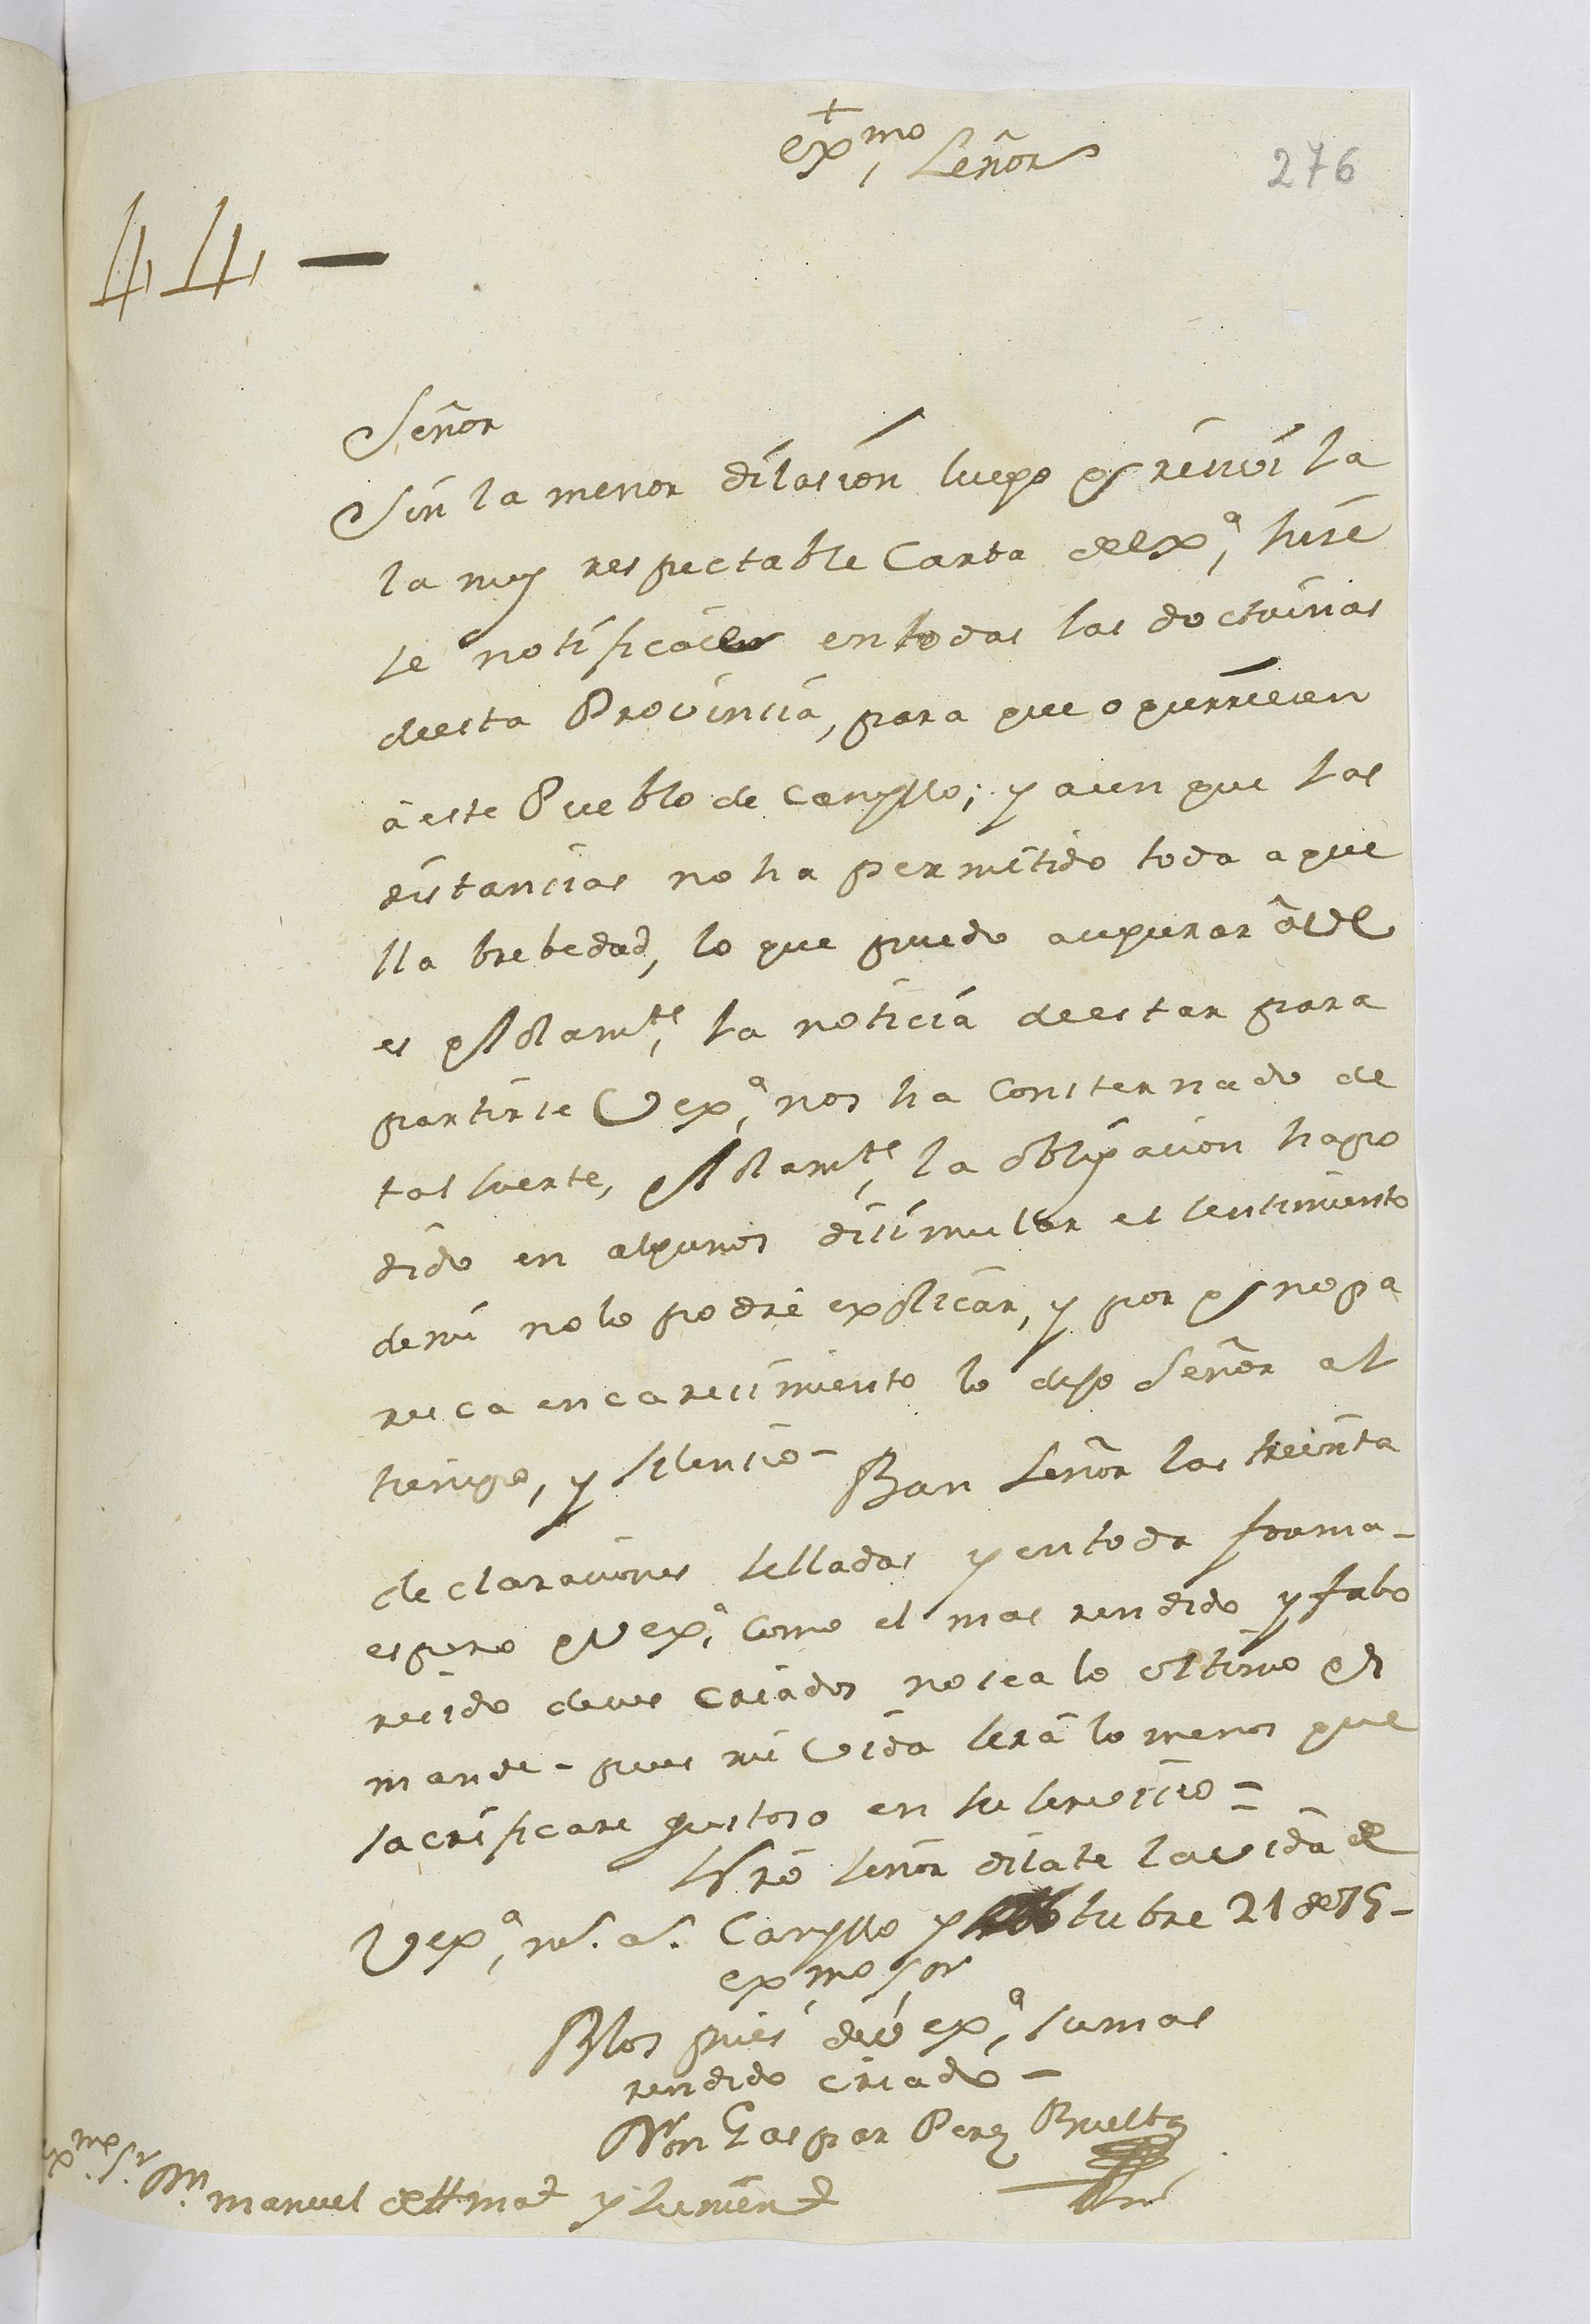 +
exmo, Señor
276
44 —
Señor
Sin la menor dilasion luego q resiui la
la muy respectable Carta de ex.ª, hise
se notificase en todas las doctrinas
desta Provinçia, para que ocurriesen
à este Pueblo de Canyllo; y aun que las
distancias no ha permitido toda aque
lla brebedad, lo que puedo asegurar â VE
es q solamte, la noticia de estar para
partirse Vexª, nos ha consternado de
tal suerte, q solamte, la obligacion ha po
dido en algunos disimular el sentimiento
de mi no lo podrè explicar, y por q no pa
resca encaresimiento lo dejo Señor al
tiempo, y silencio— Ban Señor las treinta
declaraciones selladas y en toda forma—
espero q Vexª, como el mas rendido y fabo
recido de sus criados no sea lo ultimo q
mande— pues mi vida serà lo menos que
sacrificare gustoso en su servicio=
Nro señor dilate la vida de
Vexª, ms. as. Canyllo y Octubre 21 de 75—
exmo sor
Blos pies de V exª, su mas
rendido criado—
Don Gaspar Perez Buelta
exmo Sr. Dn. Manuel de Amat y Junient